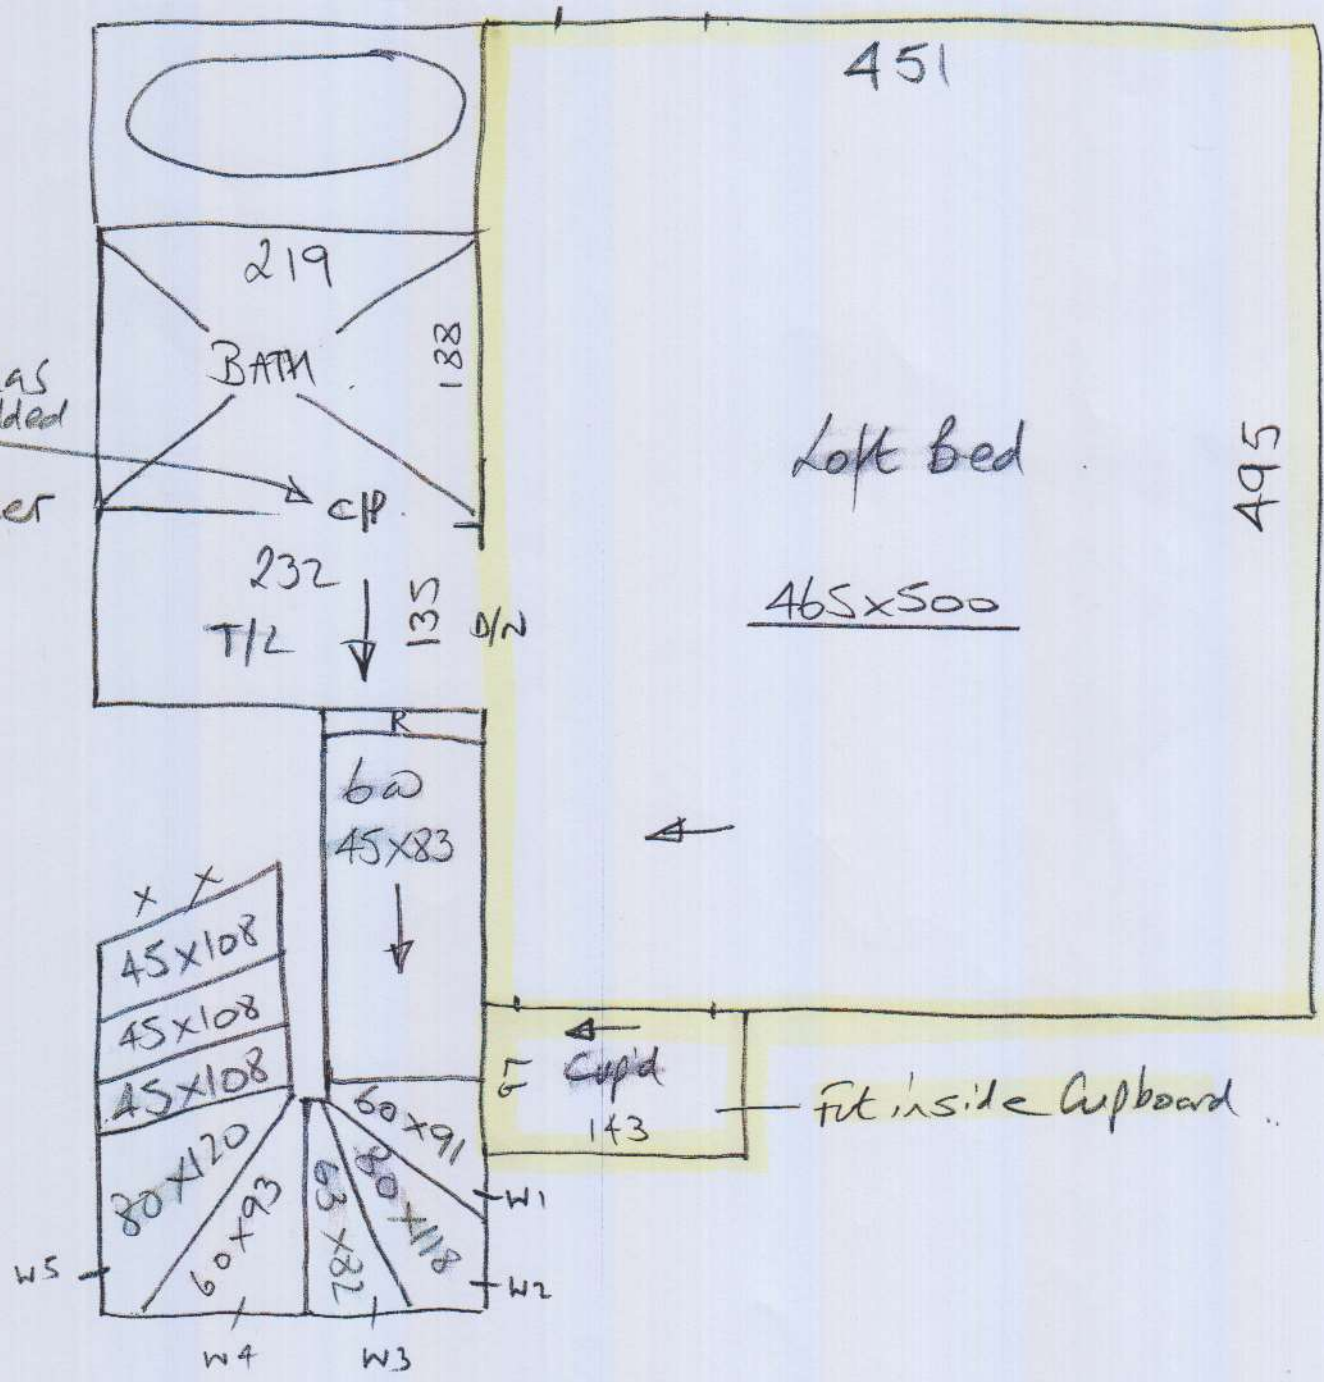 451
219
188
BATH
as
lded
er
C/P
232
135
T/L
D/N
Loft Bed
495
465x500
R
6@
45x83
x x
45x108
45x108
45x108
80x120
60x93
63x82
80x118
60x91
Cup'd
143
Fit inside Cupboard ..
W1
W2
W3
W4
W5